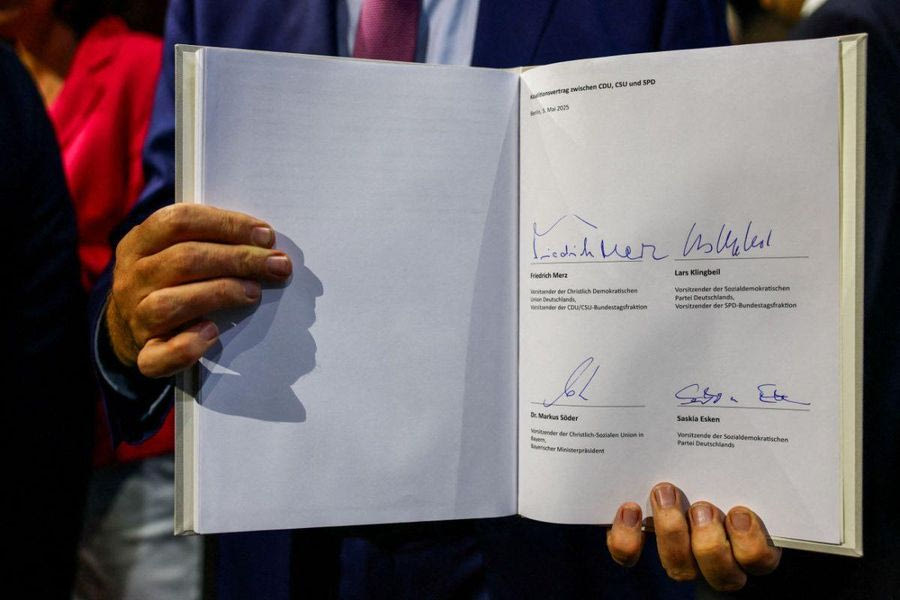 Koalitionsvertrag zwischen CDU, CSU und SPD
Berlin, 5. Mai 2025
Friedrich Merz
Lars Klingbeil
Friedrich Merz
Vorsitzender der Christlich Demokratischen
Union Deutschlands,
Vorsitzender der CDU/CSU-Bundestagsfraktion
Lars Klingbeil
Vorsitzender der Sozialdemokratischen
Partei Deutschlands,
Vorsitzender der SPD-Bundestagsfraktion
Dr. Markus Söder
Vorsitzender der Christlich-Sozialen Union in
Bayern,
Bayerischer Ministerpräsident
Saskia Esken
Vorsitzende der Sozialdemokratischen
Partei Deutschlands